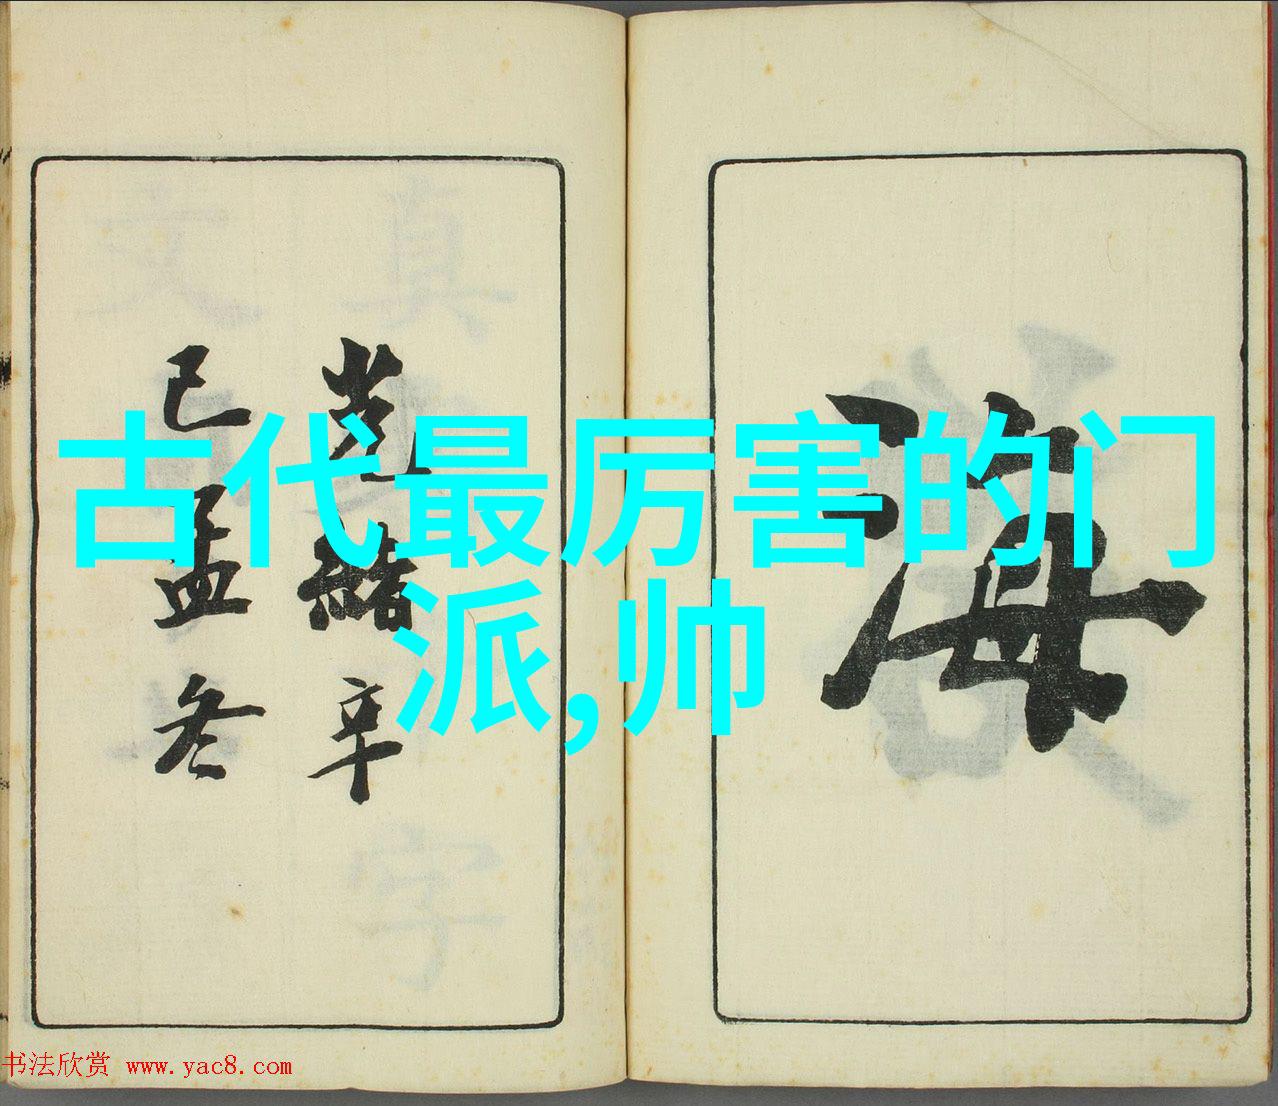 古代最厉害的门
派,帅
海
光緒辛
已孟冬
书法欣赏 www.yac8.com